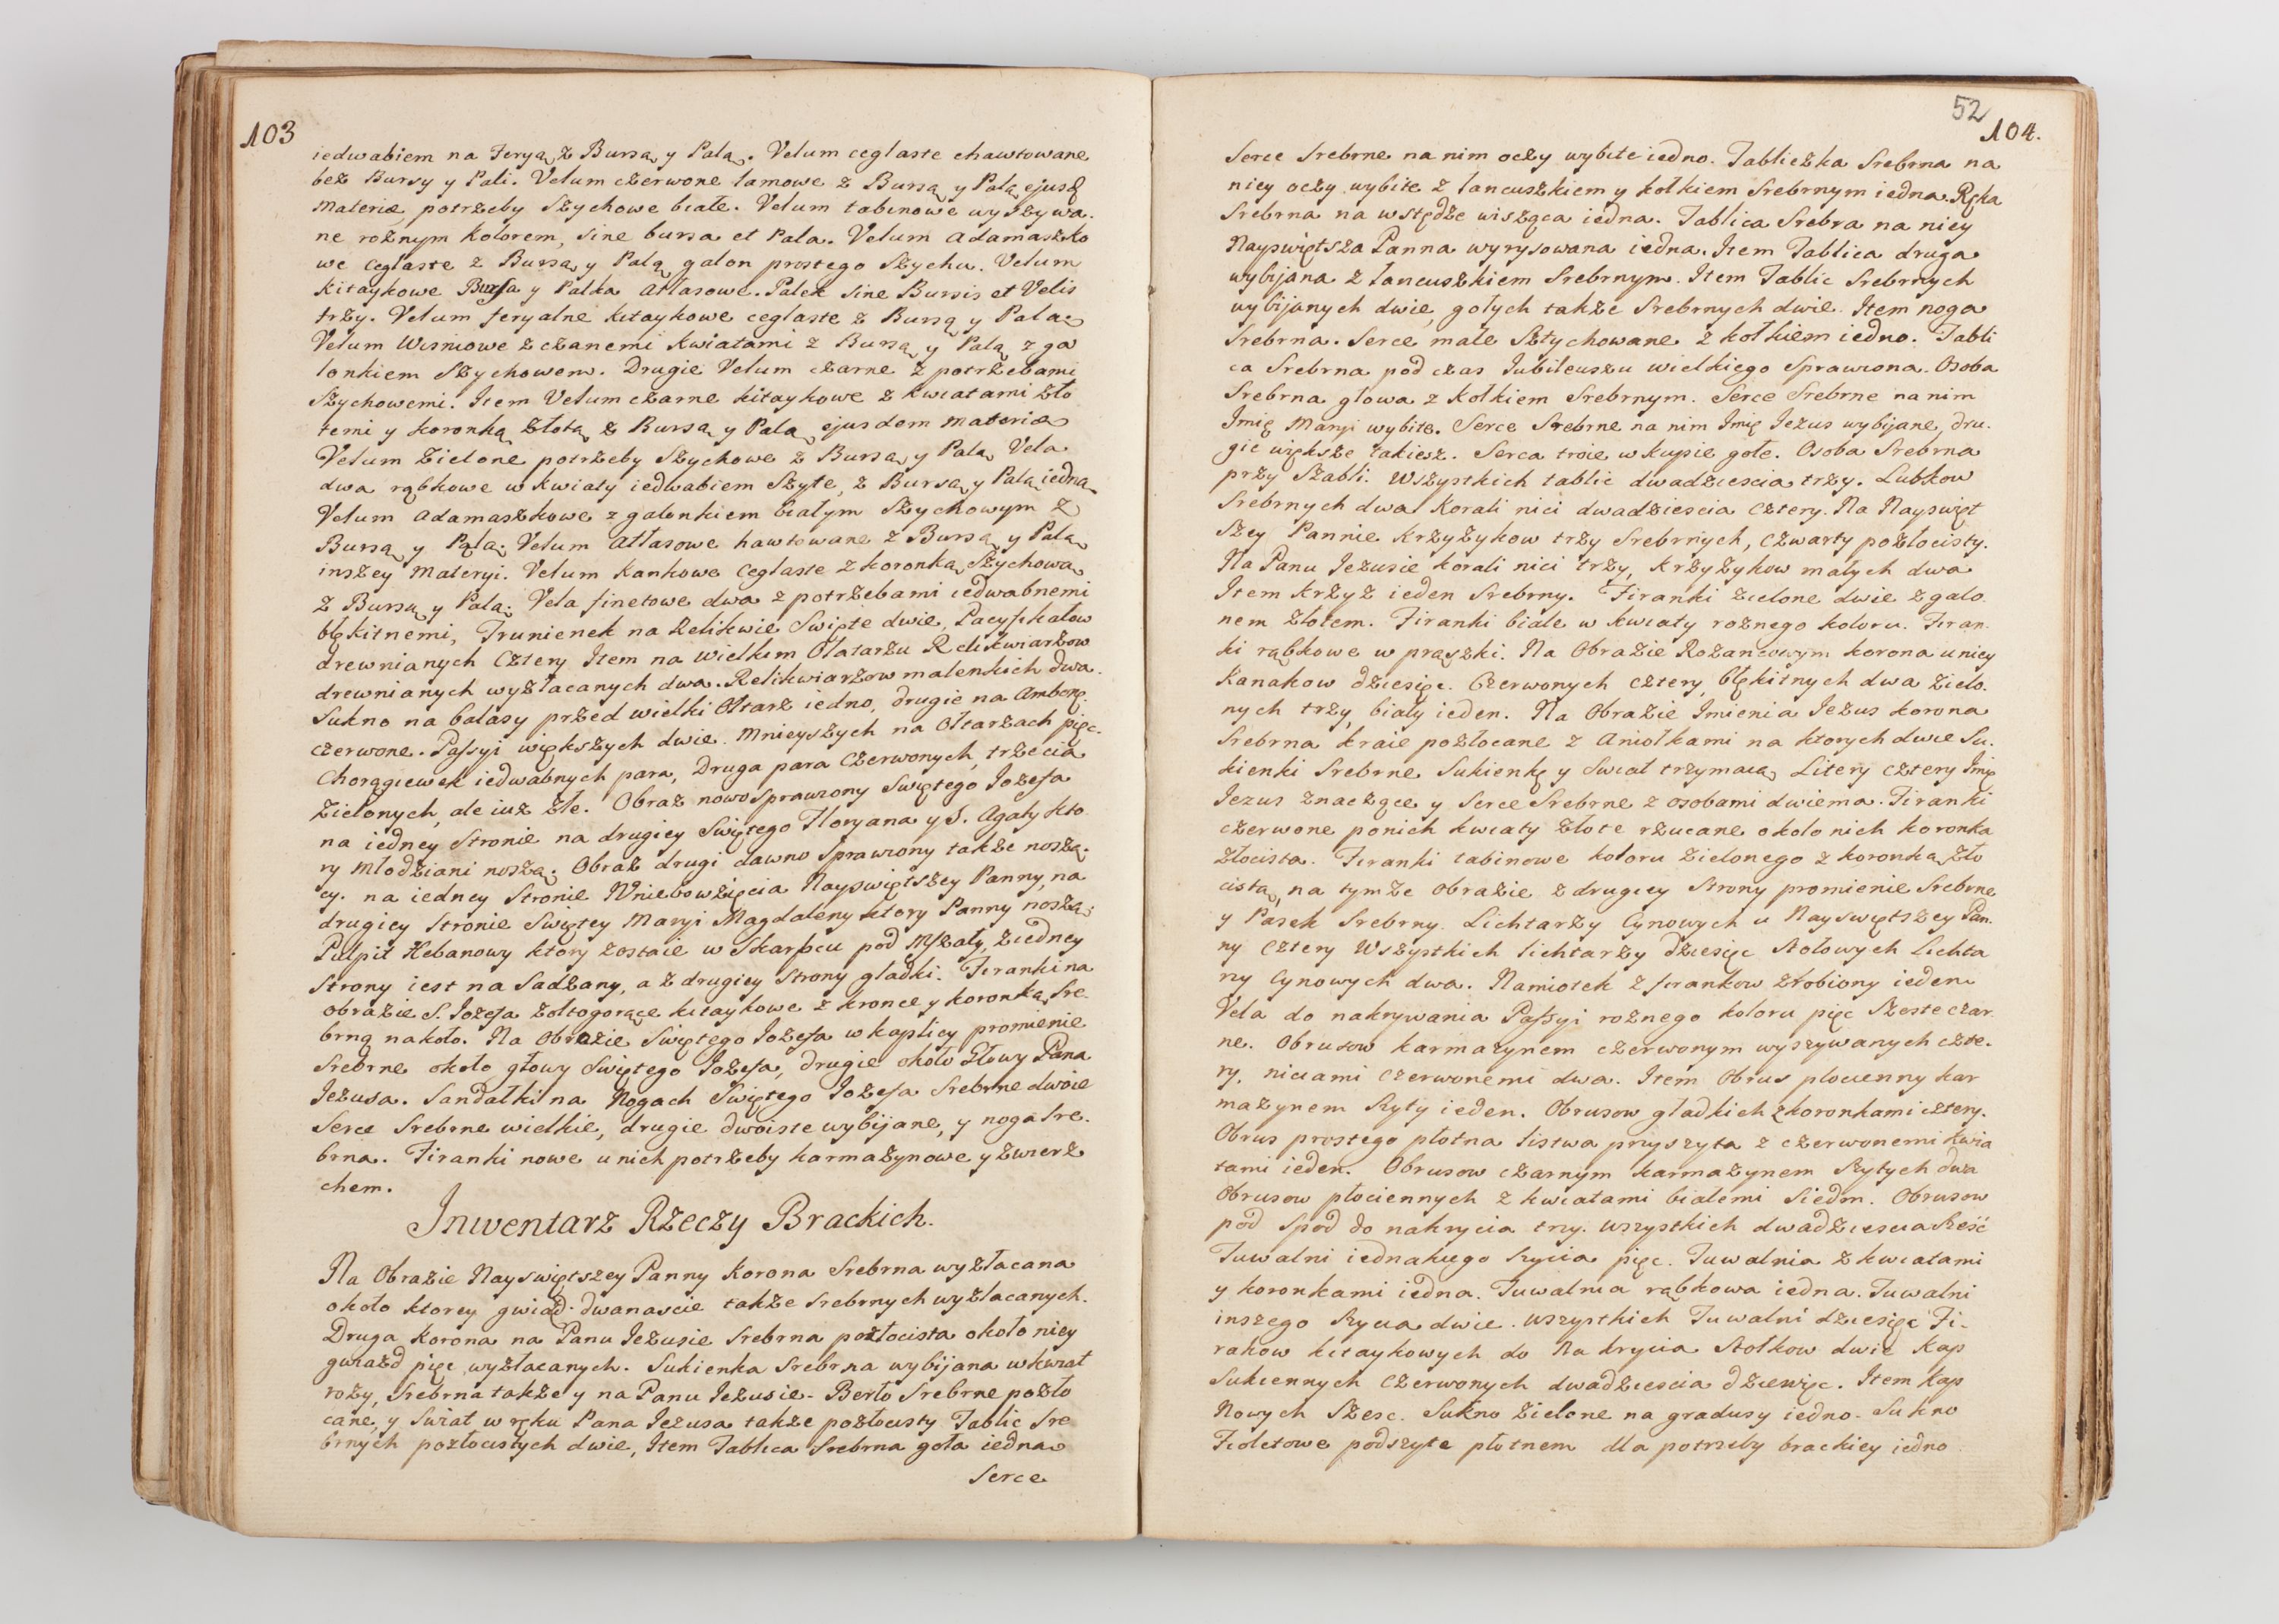 103
iedwabiem na Feryą, z Bursą y Palą. Velum ceglaste chawtowane
bez Bursy y Pali. Velum czerwone lamowe z Bursą y Palą ejusd
Materiæ potrzeby Szychowe białe. Velum tabinowe wyszywa-
ne rożnym Kolorem, sine bursa et Pala. Velum Adamaszko
we Ceglaste z Bursą y Palą galon prostego Szychu. Velum
Kitaykowe Bursa y Palka Atłasowe. Palek sine Bursis et Velis
trzy. Velum feryalne kitaykowe ceglaste z Bursą y Palą
Velum Wisniowe z czanemi Kwiatami z Bursą y Palą z ga
lonkiem Szychowem. Drugie Velum czarne z potrzebami
Szychowemi. Item Velum czarne kitaykowe z kwiatami zło
temi y koronką złotą z Bursą y Palą ejusdem Materiæ
Velum Zielone potrzeby Szychowe z Bursą y Palą, Vela
dwa rąbkowe w kwiaty iedwabiem Szyte, z Bursą y Palą iedną
Velum Adamaszkowe z galonkiem białym Szychowym z
Bursą y Palą. Velum Atłasowe hawtowane z Bursą y Palą
inszey Materyi. Velum Kankowe Ceglaste z koronką Szychową
z Bursą y Palą. Vela finetowe dwa z potrzebami iedwabnemi
błękitnemi, Trunienek na Relikwie Swięte dwie, Pacyfikałow
drewnianych Cztery Item na wielkim Ołatarzu Relikwiarzow
drewnianych wyzłacanych dwa. Relikwiarzow malenkich dwa.
Sukno na balasy przed wielki Ołtarz iedno, drugie na Ambonę
czerwone. Passyi większych dwie. Mnieyszych na Ołtarzach pięc.
Chorągiewek iedwabnych para, Druga para Czerwonych, trzecia
Zielonych, ale iuz złe. Obraz nowo Sprawiony Swiętego Jozefa
na iedney Stronie na drugiey Swiętego Floryana y S. Agaty kto
ry Młodziani noszą. Obraz drugi dawno Sprawiony także noszą-
cy. na iedney Stronie Wniebowzięcia Nayswiętszey Panny, na
drugiey Stronie Swiętey Maryi Magdaleny ktory Panny noszą;
Pulpit Hebanowy ktory zostaie w Skarbcu pod Mszały, z iedney
Strony iest na Sadzany, a z drugiey Strony gładki. Firanki na
obrazie S. Jozefa zołtogorące kitaykowe z kronce y koronką Sre-
brną nakoło. Na Obrazie Swiętego Jozefa w kaplicy promienie
Srebrne około głowy Swiętego Jozefa, drugie około Głowy Pana
Jezusa. Sandałki na Nogach Swiętego Jozefa Srebrne dwoie
Serce Srebrne wielkie, drugie dwoiste wybijane, y noga Sre-
brna. Firanki nowe u nich potrzeby karmazynowe y z wierz
chem.
Inwentarz Rzeczy Brackich.
Na Obrazie Nayswiętszey Panny Korona Srebrna wyzłacana
około ktorey gwiad. dwanascie także Srebrnych wyzłacanych.
Druga Korona na Panu Jezusie Srebrna pozłocista około niey
gwiazd pięc wyzłacanych. Sukienka Srebrna wybijana w kwiat
rozy, Srebrna także y na Panu Jezusie. Berło Srebrne pozło
cane, y Swiat w ręku Pana Jezusa także pozłocisty Tablic Sre
brnych pozłocistych dwie, Item Tablica Srebrna goła iedna
Serce
52
104.
Serce Srebrne na nim oczy wybite iedno. Tabliczka Srebrna na
niey oczy wybite z łancuszkiem y kołkiem Srebrnym iedna. Ręka
Srebrna na wstędze wisząca iedna. Tablica Srebra na niey
Nayswiętsza Panna wyrysowana iedna. Item Tablica druga
wybijana z łancuszkiem Srebrnym. Item Tablic Srebrnych
wybijanych dwie, gołych także Srebrnych dwie. Item noga
Srebrna. Serce małe Sztychowane z kołkiem iedno. Tabli
ca Srebrna pod czas Jubileuszu wielkiego Sprawiona. Osoba
Srebrna głowa z Kołkiem Srebrnym. Serce Srebrne na nim
Jmię Maryi wybite. Serce Srebrne na nim Jmię Jezus wybijane, dru-
gie większe takiesz. Serca troie w kupie gołe. Osoba Srebrna
przy Szabli. Wszystkich tablic dwadziescia trzy. Lubkow
Srebrnych dwa Korali nici dwadziescia Cztery. Na Nayswięt
szey Pannie Krzyzykow trzy Srebrnych, Czwarty pozłocisty.
Na Panu Jezusie korali nici trzy, krzyzykow małych dwa
Item krzyz ieden Srebrny. Firanki zielone dwie z galo
nem złotem. Firanki białe w kwiaty rożnego koloru. Firan-
ki rąbkowe w prązki. Na Obrazie Rożancowym korona u niey
Kanakow dziesięc. Czerwonych cztery, błękitnych dwa zielo-
nych trzy, biały ieden. Na Obrazie Jmienia Jezus korona
Srebrna kraie pozłocane z Aniołkami na ktorych dwie Su-
kienki Srebrne Sukienkę y Swiat trzymaią Litery cztery Jmię
Jezus znaczące y Serce Srebrne z osobami dwiema. Firanki
czerwone po nich kwiaty złote rzucane około nich koronka
złocista. Firanki tabinowe koloru zielonego z koronką zło
cistą, na tymze obrazie z drugiey Strony promienie Srebrne
y Pasek Srebrny. Lichtarzy Cynowych u Nayswiętszey Pan-
ny Cztery Wszystkich lichtarzy dziesięc Stołowych Lichta
rzy Cynowych dwa. Namiotek z firankow złobiony ieden
Vela do nakrywania Passyi rożnego koloru pięc Szoste czar
ne. Obrusow karmazynem czerwonym wyszywanych czte-
ry, niciami Czerwonemi dwa. Item Obrus płocienny kar
mazynem Szyty ieden. Obrusow gładkich z koronkami cztery.
Obrus prostego płotna listwa przyszyta z czerwonemi kwia
tami ieden. Obrusow czarnym karmazynem Szytych dwa
Obrusow płociennych z kwiatami białemi Siedm. Obrusow
pod Spod do nakrycia trzy. wszystkich dwadziescia Sześć
Tuwalni iednakiego Szycia pięc. Tuwalnia z kwiatami
y koronkami iedna. Tuwalnia rąbkowa iedna. Tuwalni
inszego Szycia dwie. wszystkich Tuwalni dziesięc Fi-
rakow kitaykowych do Na krycia Stołkow dwie Kap
Sukiennych Czerwonych dwadziescia dziewięc. Item Kap
Nowych Szesc. Sukno Zielone na gradusy iedno. Sukno
Fioletowe podszyte płotnem dla potrzeby brackiey iedno